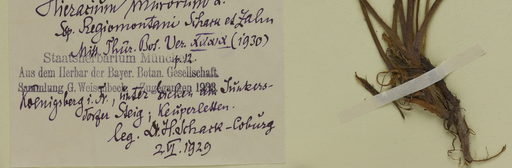 Hieracium murorum L.
ssp. Regiomontani Schack et Zahn
Mitt. Thür. Bot. Ver. (1930)
p. 12.
Staatsherbarium München
Aus dem Herbar der Bayer. Botan. Gesellschaft.
Sammlung G. Weisenbeck, Zugegangen 1932
Koenigsberg i. Fr. unter
Steig; Keuperletten.
leg. Dr. H. Schack-Coburg
2 VI. 1929